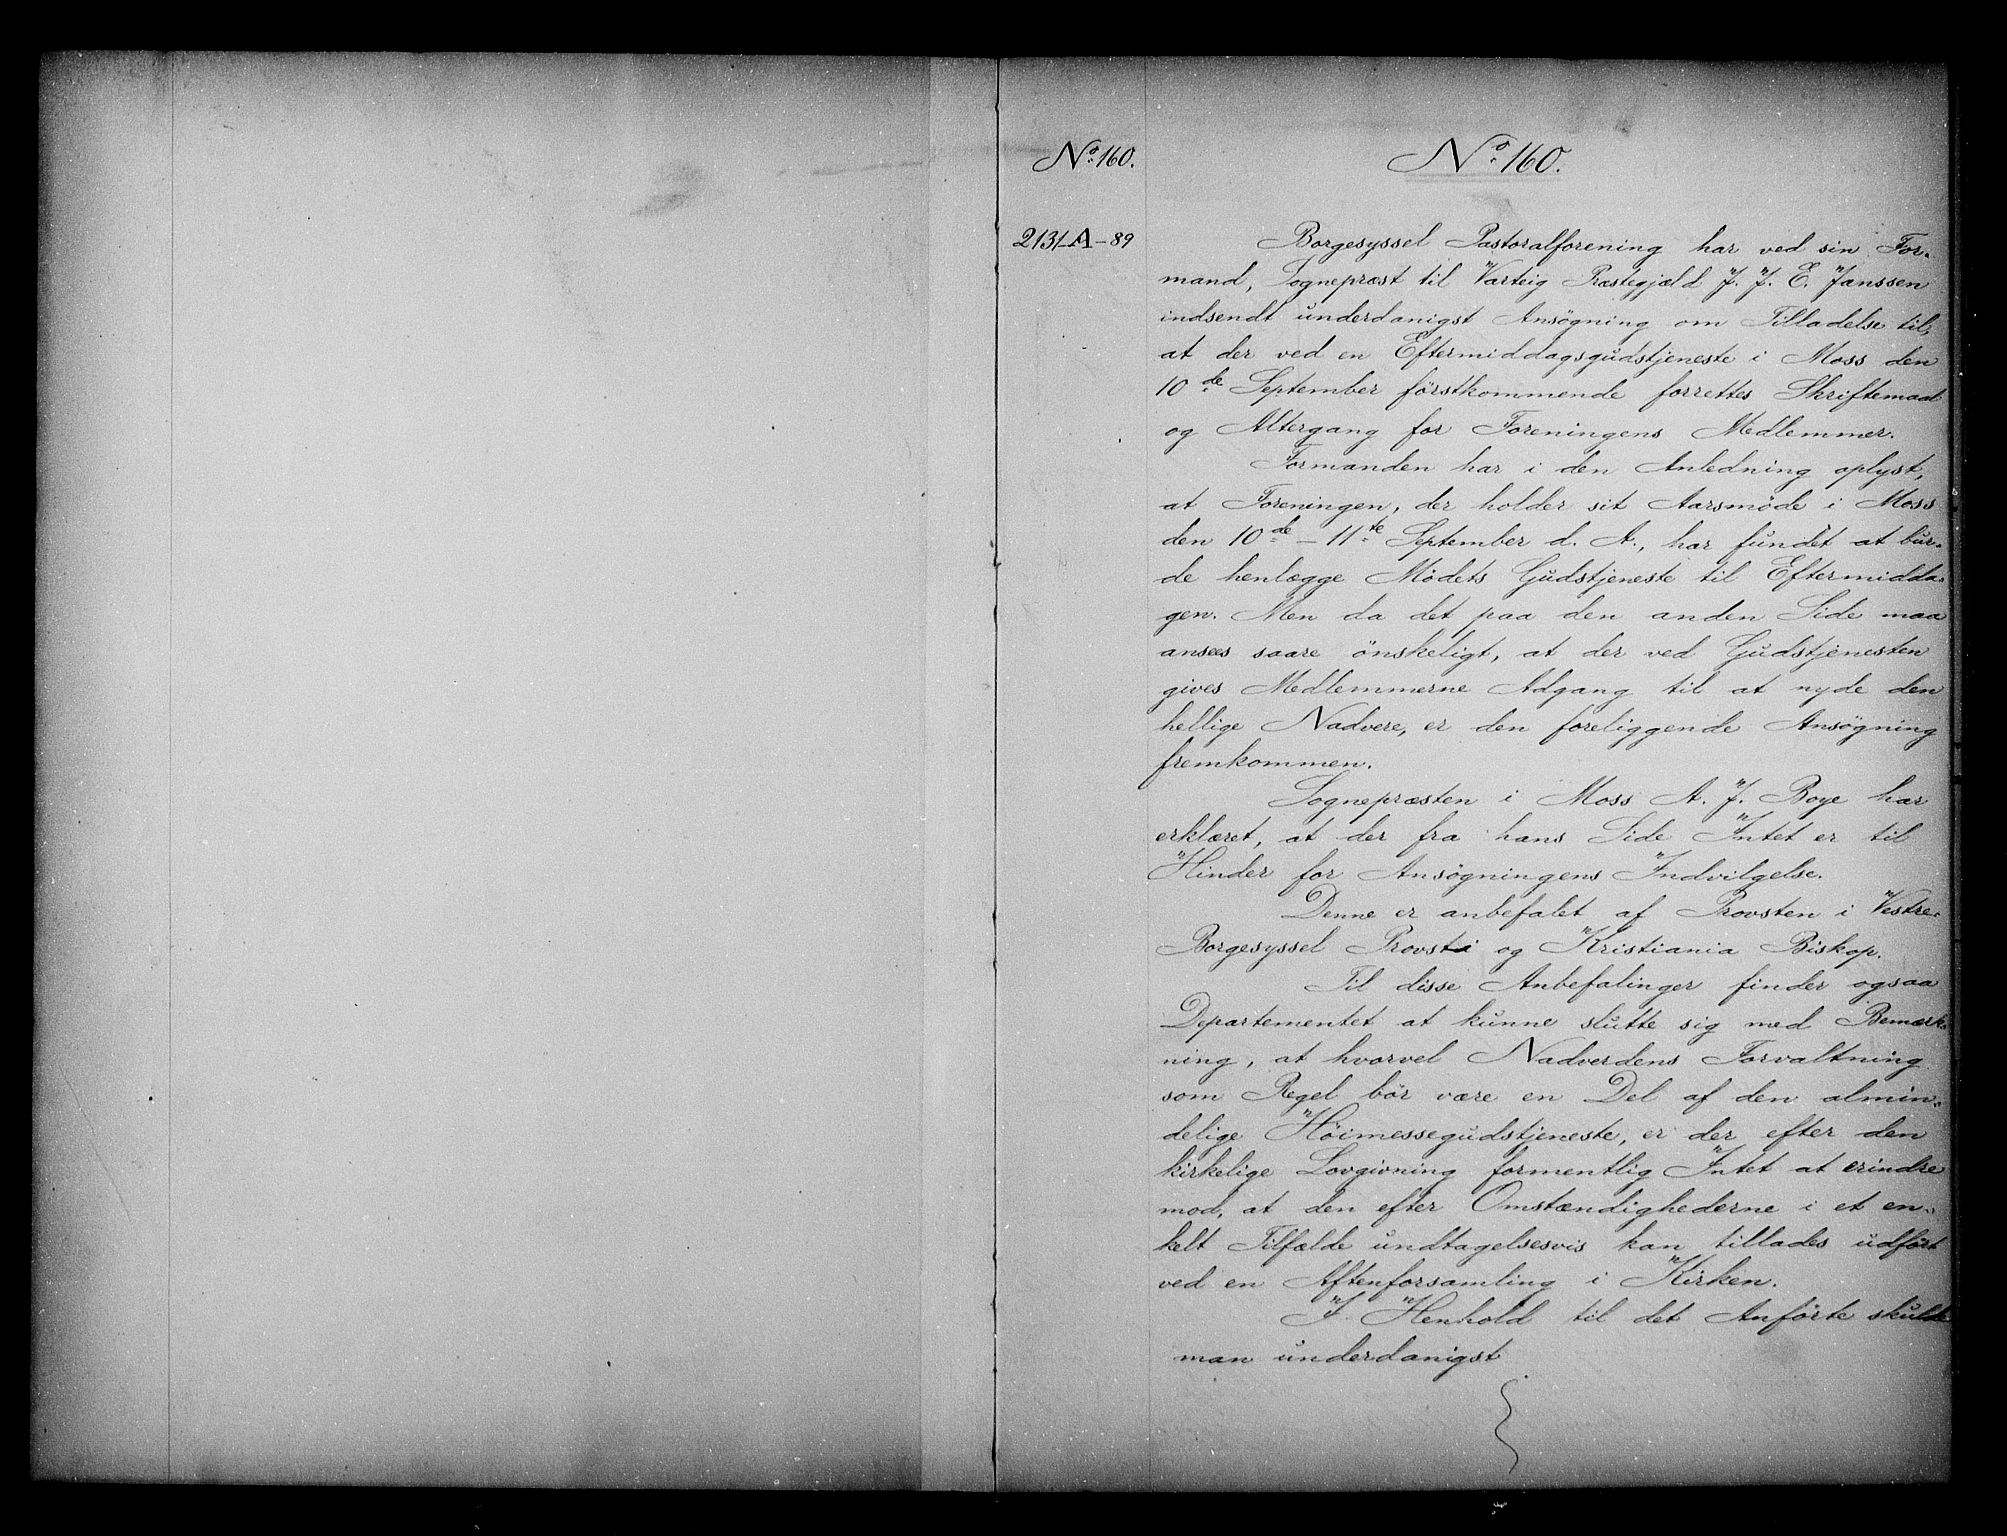 No. 160.
No. 160.
2131-A-89
Borgesyssel Pastoralforening har ved sin For-
mand, Sogneprest til Varteig Præstegjæld J. J. E. Janssen
indsendt underdanigst Ansøgning om Tilladelse til,
at der ved en Eftermiddagsgudstjeneste i Moss den
10de September førstkommende forrettes Skriftemaal
og Altergang for Foreningens Medlemmer.
Formanden har i den Anledning oplyst,
at Foreningen, der holder sit Aarsmøde i Moss
den 10de-11te September d. A., har fundet at bur-
de henlægge Mødets Gudstjeneste til Eftermidda-
gen. Men da det paa den anden Side maa
ansees saare ønskeligt, at der ved Gudstjenesten
gives Medlemmerne Adgang til at nyde den
hellige Nadvere, er den foreliggende Ansøgning
fremkommen.
Sognepræsten i Moss A. J. Boye har
erklæret, at der fra hans Side Intet er til
Hinder for Ansøgningens Indvilgelse.
Denne er anbefalet af Provsten i Vestre-
Borgesyssel Provsti og Kristiania Biskop.
Til disse Anbefalinger finder ogsaa
Departementet at kunne slutte sig med Bemærk-
ning, at hvorvel Nadverdens Forvaltning
som Regel bør være en Del af den almin-
delige Høimessegudstjeneste, er der efter den
kirkelige Lovgivning formentlig Intet at erindre
mod, at den efter Omstændighederne i et en-
kelt Tilfælde undtagelsesvis kan tillades udført
ved en Aftenforsamling i Kirken.
I Henhold til det Anførte skulde
man underdanigst